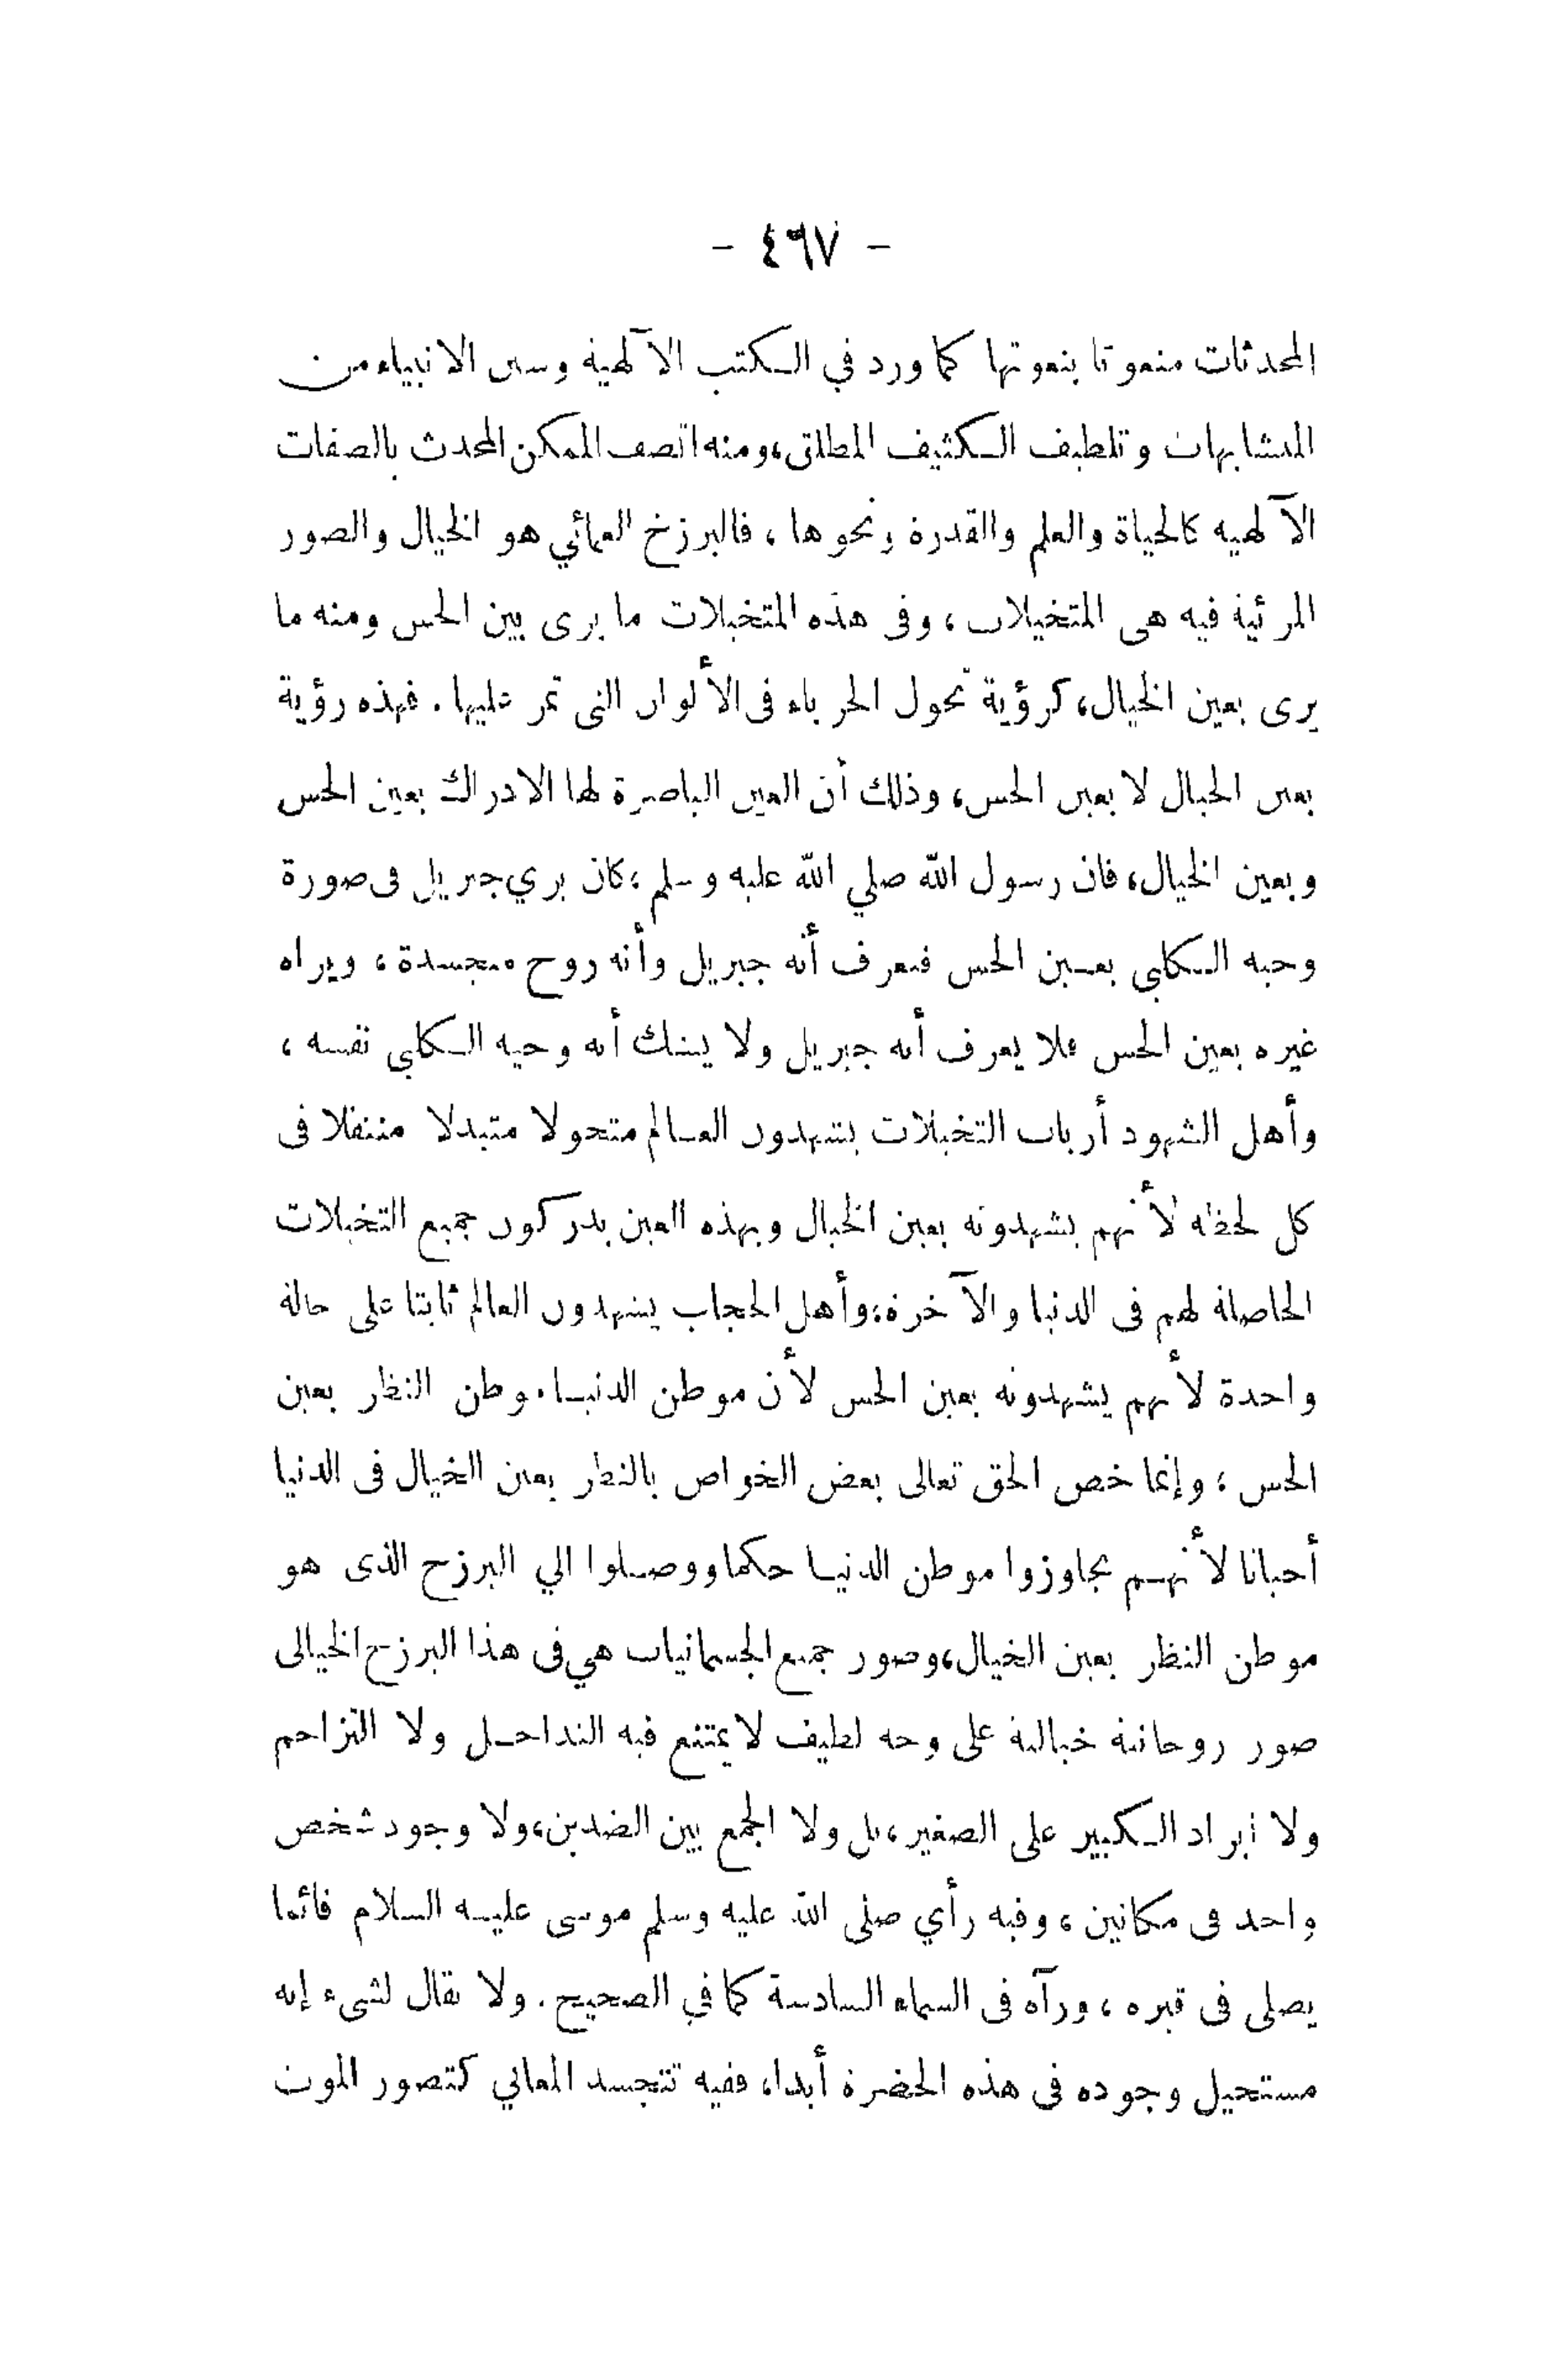 - ٤٦٧ -
المحدثات منعوتا بنعوتها كما ورد في الكتب الآلهية وسنن الانبياء من
المتشابهات وتلطيف الكثيف المطلق، ومنه اتصف الممكن المحدث بالصفات
الآلهيه كالحياة والعلم والقدرة ونحوها ، فالبرزخ العمائي هو الخيال والصور
المرئية فيه هى المتخيلات ، وفى هذه المتخيلات ما يرى بين الحس ومنه ما
يرى بعين الخيال، كرؤية تحول الحرباء فى الألوان التى تمر عليها . فهذه رؤية
بعين الخيال لا بعين الحس، وذلك أن العين الباصرة لها الادراك بعين الحس
وبعين الخيال، فان رسول الله صلي الله عليه وسلم ، كان يري جبريل فى صورة
وحيه الكلبي بعين الحس فيعرف أنه جبريل وأنه روح متجسدة ، ويراه
غيره بعين الحس فلا يعرف أنه جبريل ولا يشك أنه وحيه الكلبي نفسه ،
وأهل الشهود أرباب التخيلات يشهدون العالم متحولا متبدلا منتقلا فى
كل لحظه لأنهم يشهدونه بعين الخيال وبهذه العين يدركون جميع التخيلات
الحاصلة لهم فى الدنيا والآخرة، وأهل الحجاب يشهدون العالم ثابتا على حالة
واحدة لأنهم يشهدونه بعين الحس لأن موطن الدنيا. وطن النظر بعين
الحس ، وإنما خص الحق تعالى بعض الخواص بالنظر بعين الخيال فى الدنيا
أحيانا لأنهم تجاوزوا موطن الدنيا حكما ووصلوا الي البرزح الذى هو
موطن النظر بعين الخيال، وصور جميع الجسمانيات هي فى هذا البرزخ الخيالى
صور روحانية خيالية على وجه لطيف لا يمتنع فيه التداخل ولا التزاحم
ولا ايراد الكبير على الصغير ، بل ولا الجمع بين الضدين، ولا وجود شخص
واحد فى مكانين ، وفيه رأي صلى الله عليه وسلم موسى عليه السلام قائما
يصلى فى قبره ، ورآه فى السماء السادسة كما في الصحيح . ولا يقال لشىء إنه
مستحيل وجوده فى هذه الحضرة أبدا، ففيه تتجسد المعاني كتصور الموت